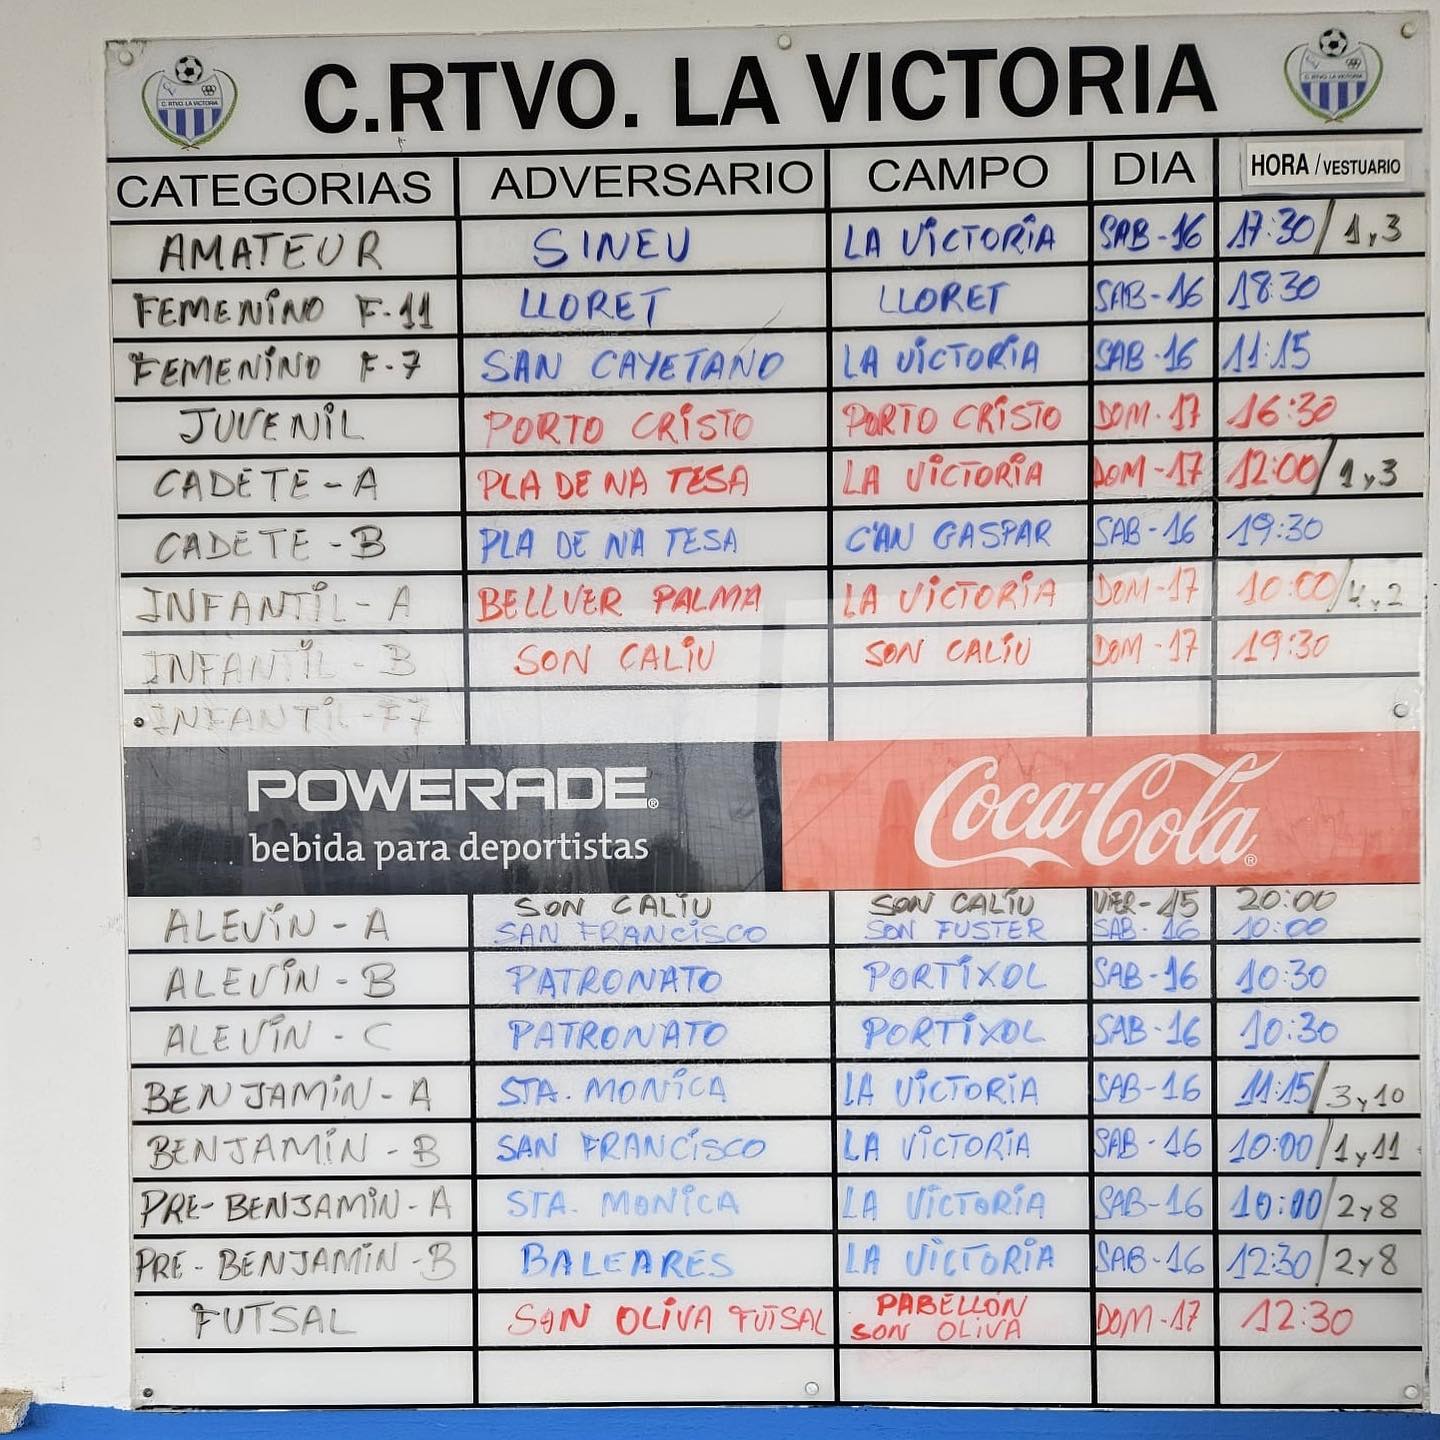 C.RTVO. LA VICTORIA
C. RTVO. LA VICTORIA
C. RTVO. LA VICTORIA
CATEGORIAS ADVERSARIO CAMPO DIA HORA / VESTUARIO
AMATEUR SINEU LA VICTORIA SAB-16 17:30/1y3
FEMENINO F-11 LLORET LLORET SAB-16 18:30
FEMENINO F-7 SAN CAYETANO LA VICTORIA SAB-16 11:15
JUVENIL PORTO CRISTO PORTO CRISTO DOM-17 16:30
CADETE-A PLA DE NA TESA LA VICTORIA DOM-17 12:00/1y3
CADETE-B PLA DE NA TESA C'AN GASPAR SAB-16 19:30
INFANTIL-A BELLVER PALMA LA VICTORIA DOM-17 10:00/4y2
INFANTIL-B SON CALIU SON CALIU DOM-17 19:30
INFANTIL-F7
POWERADE® Coca-Cola®
bebida para deportistas
SON CALIU SON CALIU VIER-15 20:00
ALEVIN-A SAN FRANCISCO SON FUSTER SAB-16 10:00
ALEVIN-B PATRONATO PORTIXOL SAB-16 10:30
ALEVIN-C PATRONATO PORTIXOL SAB-16 10:30
BENJAMIN-A STA. MONICA LA VICTORIA SAB-16 11:15/3y10
BENJAMIN-B SAN FRANCISCO LA VICTORIA SAB-16 10:00/1y11
PRE-BENJAMIN-A STA. MONICA LA VICTORIA SAB-16 10:00/2y8
PRE-BENJAMIN-B BALEARES LA VICTORIA SAB-16 12:30/2y8
FUTSAL SON OLIVA FUTSAL PABELLON SON OLIVA DOM-17 12:30